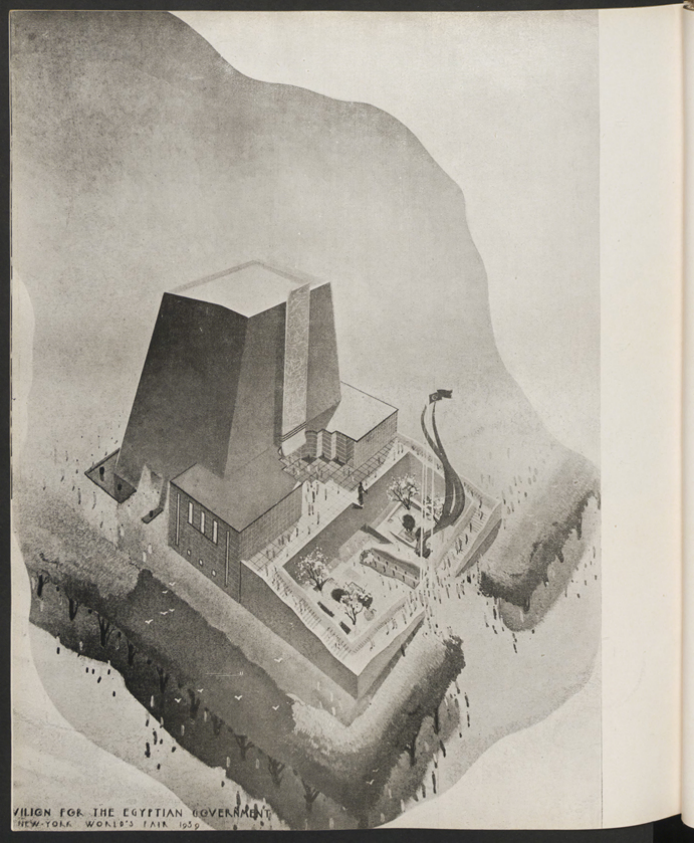 VILION FOR THE EGYPTIAN GOVERNMENT
NEW-YORK WORLD'S FAIR 1939